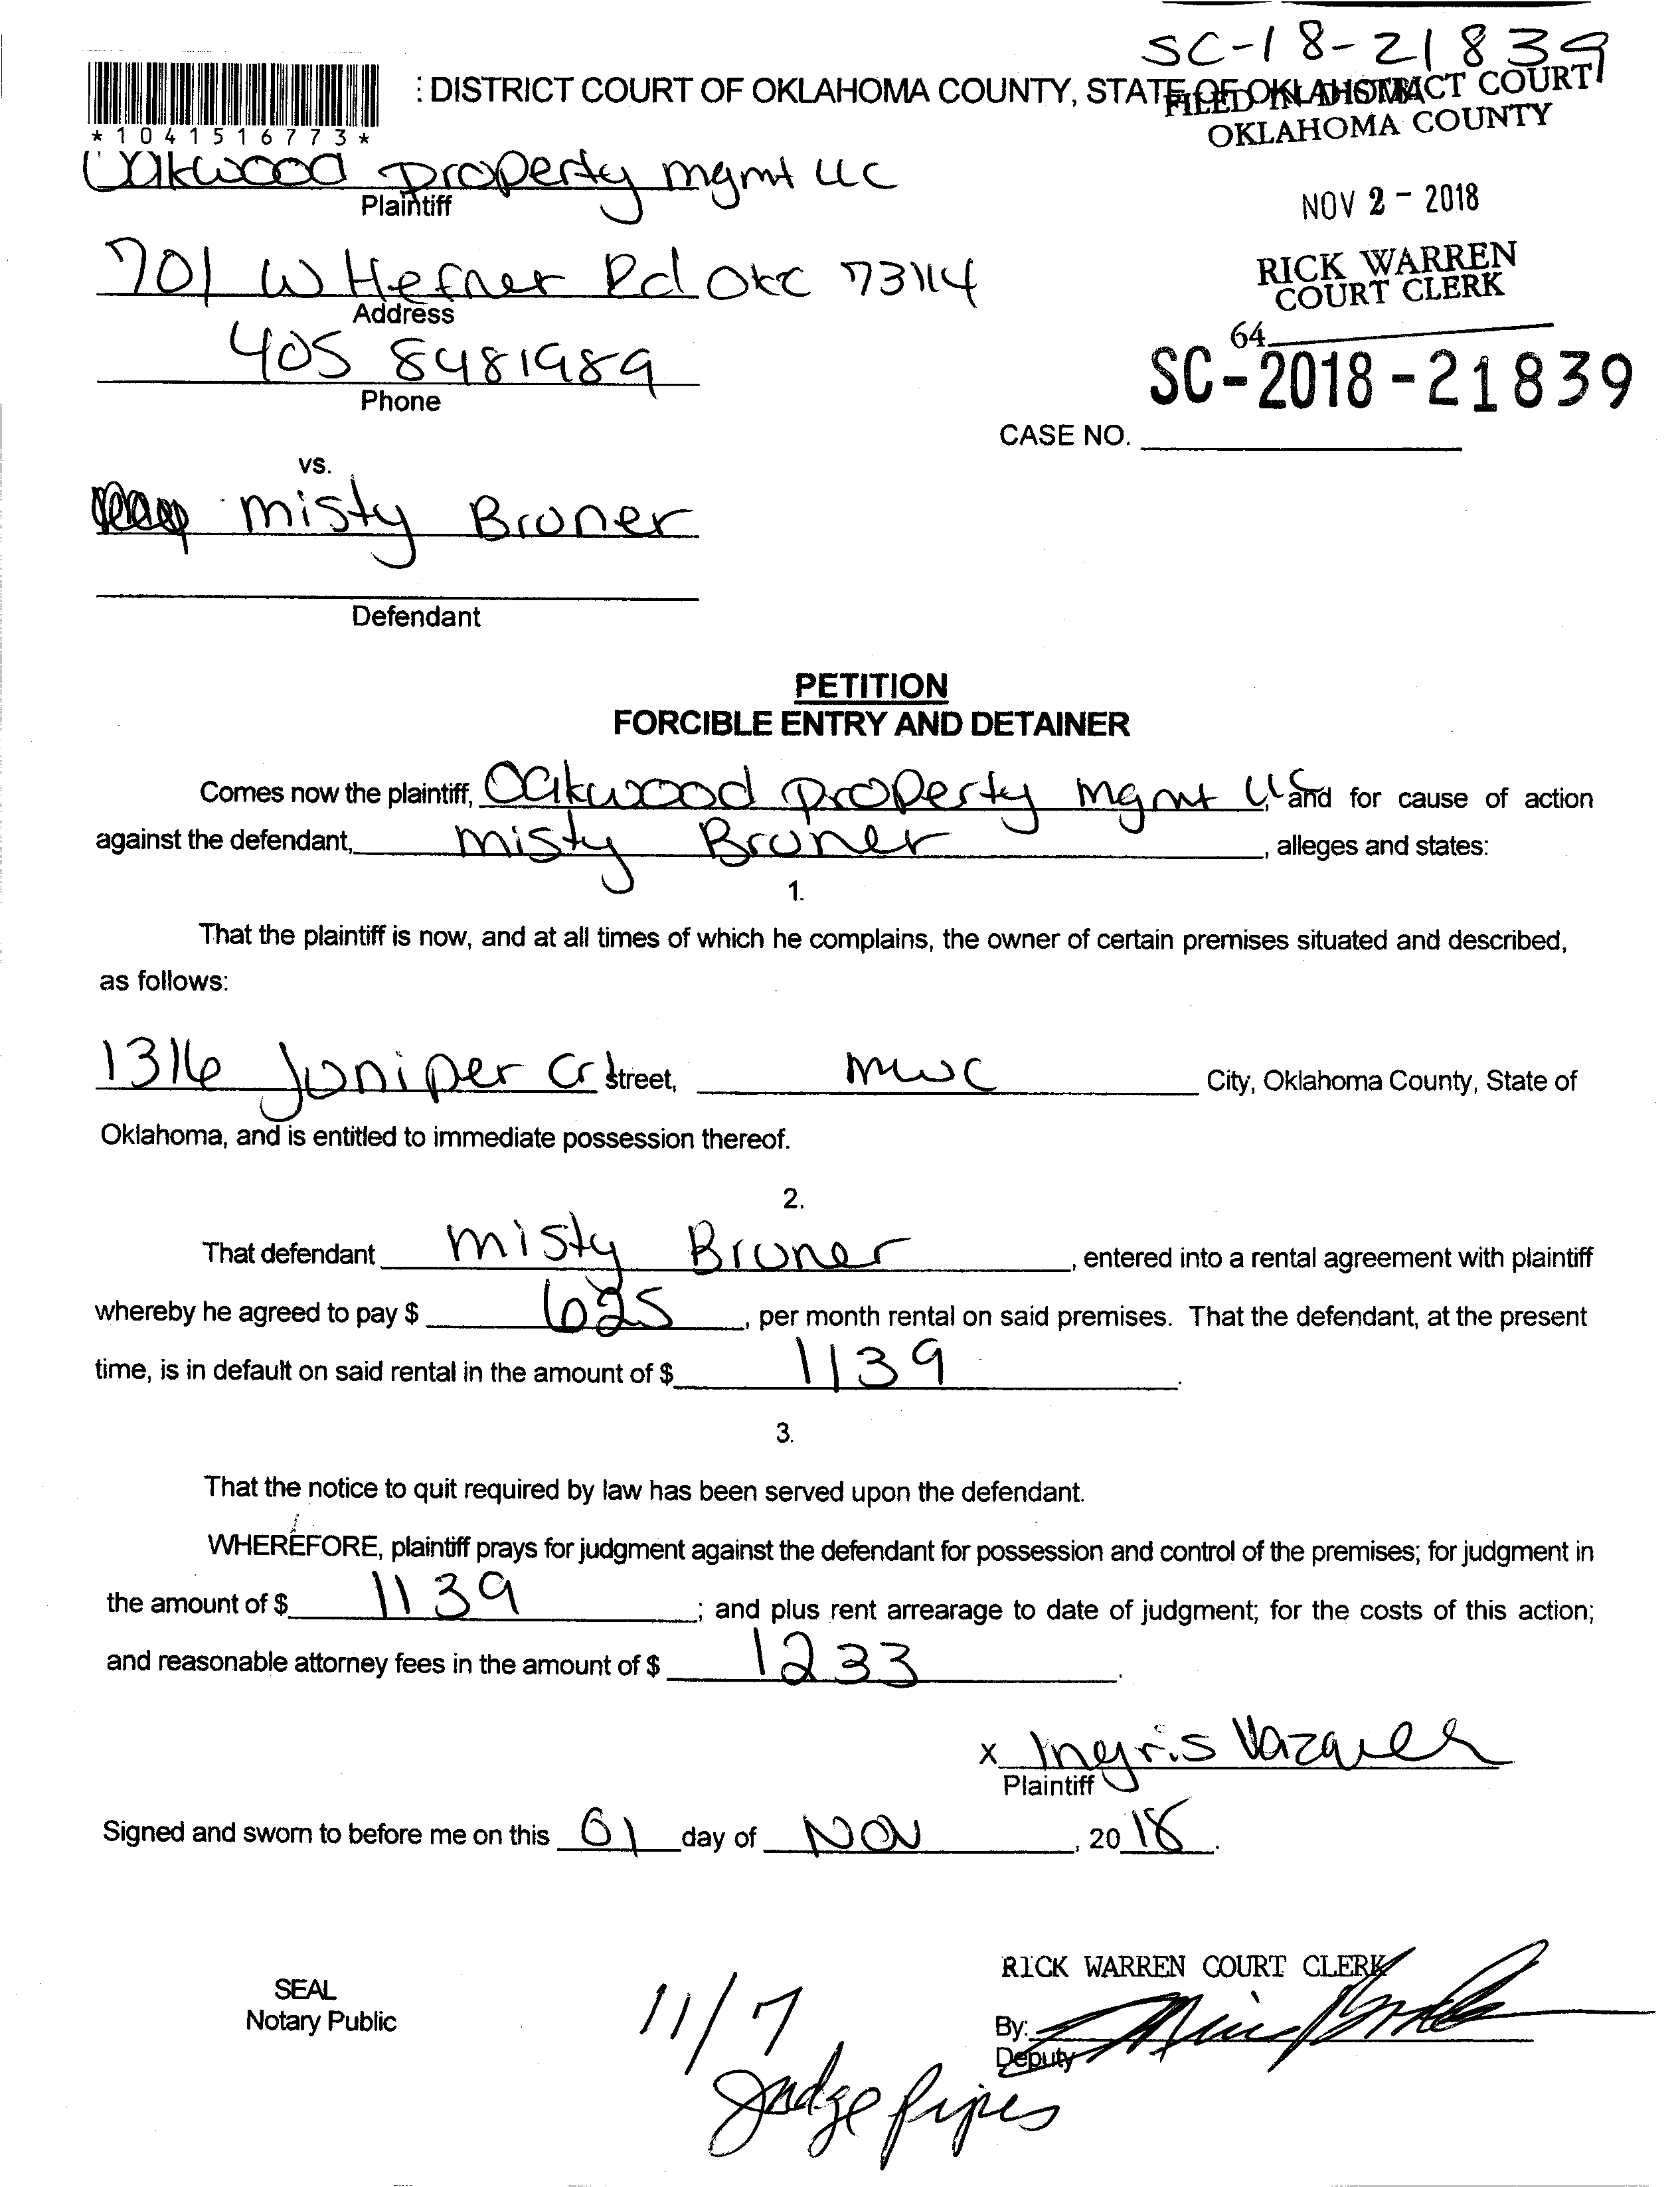 SC-18-21839
: DISTRICT COURT OF OKLAHOMA COUNTY, STATE OF OKLAHOMA
FILED IN DISTRICT COURT
OKLAHOMA COUNTY
*1041516773*
Oakwood property mgmt LLC
Plaintiff
NOV 2 - 2018
701 W Hefner Rd OKC 73114
Address
RICK WARREN
COURT CLERK
405 8481989
Phone
64
SC-2018-21839
CASE NO.
vs.
misty Bruner
Defendant
PETITION
FORCIBLE ENTRY AND DETAINER
Comes now the plaintiff, Oakwood property mgmt LLC, and for cause of action
against the defendant, misty Bruner, alleges and states:
1.
That the plaintiff is now, and at all times of which he complains, the owner of certain premises situated and described,
as follows:
1316 Juniper Cr Street, mwc City, Oklahoma County, State of
Oklahoma, and is entitled to immediate possession thereof.
2.
That defendant misty Bruner, entered into a rental agreement with plaintiff
whereby he agreed to pay $ 625, per month rental on said premises. That the defendant, at the present
time, is in default on said rental in the amount of $ 1139.
3.
That the notice to quit required by law has been served upon the defendant.
WHEREFORE, plaintiff prays for judgment against the defendant for possession and control of the premises; for judgment in
the amount of $ 1139; and plus rent arrearage to date of judgment; for the costs of this action;
and reasonable attorney fees in the amount of $ 1233.
x Ingris Vazquez
Plaintiff
Signed and sworn to before me on this 01 day of NOV, 2018.
RICK WARREN COURT CLERK
SEAL
Notary Public
11/7
By:
Deputy
Judge Pipes